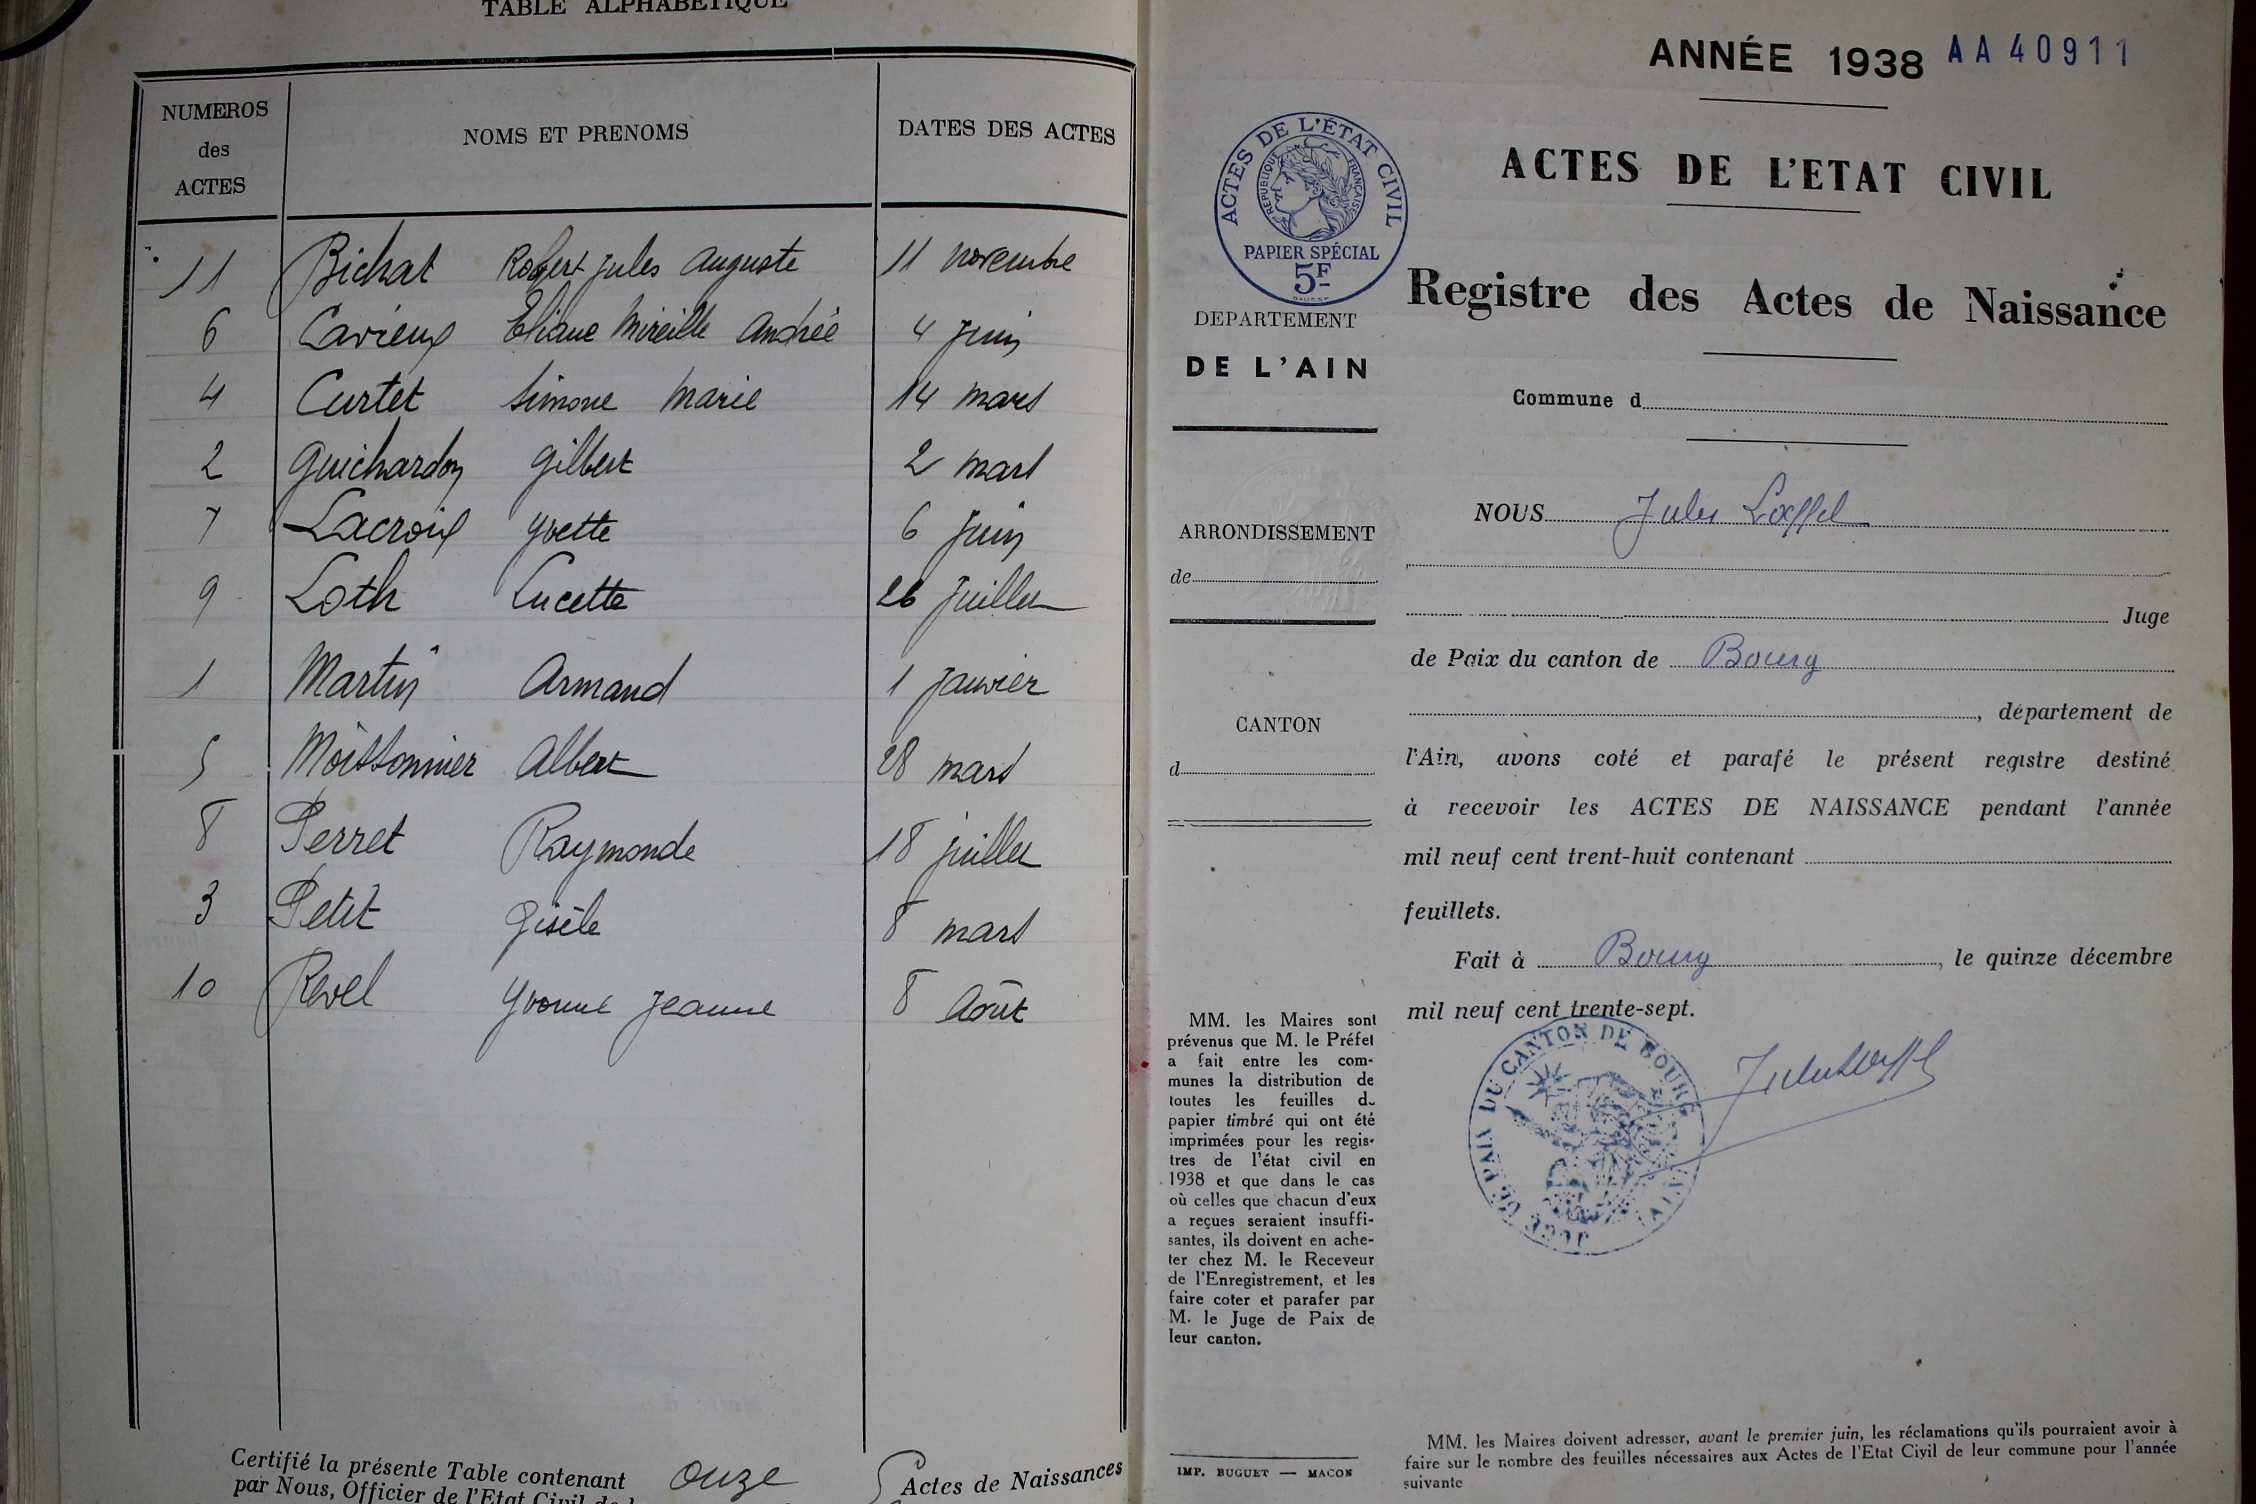 TABLE ALPHABETIQUE
NUMEROS des ACTES
NOMS ET PRENOMS
DATES DES ACTES
11 Bichat Robert Jules Auguste 11 novembre
6 Cavieux Eliane Mireille Andrée 4 juin
4 Curtet Simone Marie 14 mars
2 Guichardon Gilbert 2 mars
7 Lacroix Yvette 6 juin
9 Loth Lucette 26 Juillet
1 Martin Armand 1 Janvier
5 Moissonnier Albert 28 mars
8 Perret Raymonde 18 juillet
3 Petit Gisèle 8 mars
10 Revel Yvonne Jeanne 8 Août
Certifié la présente Table contenant onze Actes de Naissances
par Nous, Officier de l'Etat Civil de
ANNÉE 1938 AA 40911
ACTES DE L'ETAT CIVIL
ACTES DE L'ÉTAT CIVIL
RÉPUBLIQUE FRANÇAISE
PAPIER SPÉCIAL
5F
Registre des Actes de Naissance
DEPARTEMENT
DE L'AIN
Commune d
ARRONDISSEMENT
de
CANTON
d
NOUS Jules Loeffel
Juge
de Paix du canton de Bourg
, département de
l'Ain, avons coté et parafé le présent registre destiné
à recevoir les ACTES DE NAISSANCE pendant l'année
mil neuf cent trent-huit contenant
feuillets.
Fait à Bourg, le quinze décembre
mil neuf cent trente-sept.
JUGE DE PAIX DU CANTON DE BOURG (AIN)
MM. les Maires sont
prévenus que M. le Préfet
a fait entre les com-
munes la distribution de
toutes les feuilles de
papier timbré qui ont été
imprimées pour les regis-
tres de l'état civil en
1938 et que dans le cas
où celles que chacun d'eux
a reçues seraient insuffi-
santes, ils doivent en ache-
ter chez M. le Receveur
de l'Enregistrement, et les
faire coter et parafer par
M. le Juge de Paix de
leur canton.
IMP. BUGUET — MACON
MM. les Maires doivent adresser, avant le premier juin, les réclamations qu'ils pourraient avoir à
faire sur le nombre des feuilles nécessaires aux Actes de l'Etat Civil de leur commune pour l'année
suivante